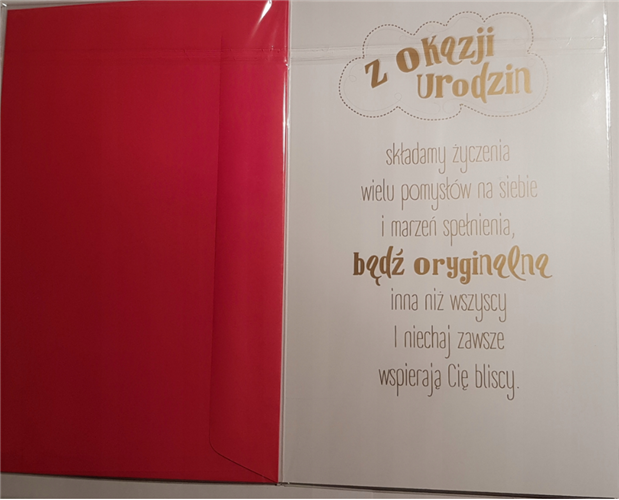 z okazji
urodzin
składamy życzenia
wielu pomysłów na siebie
i marzeń spełnienia,
bądź oryginalna
inna niż wszyscy
I niechaj zawsze
wspierają Cię bliscy.